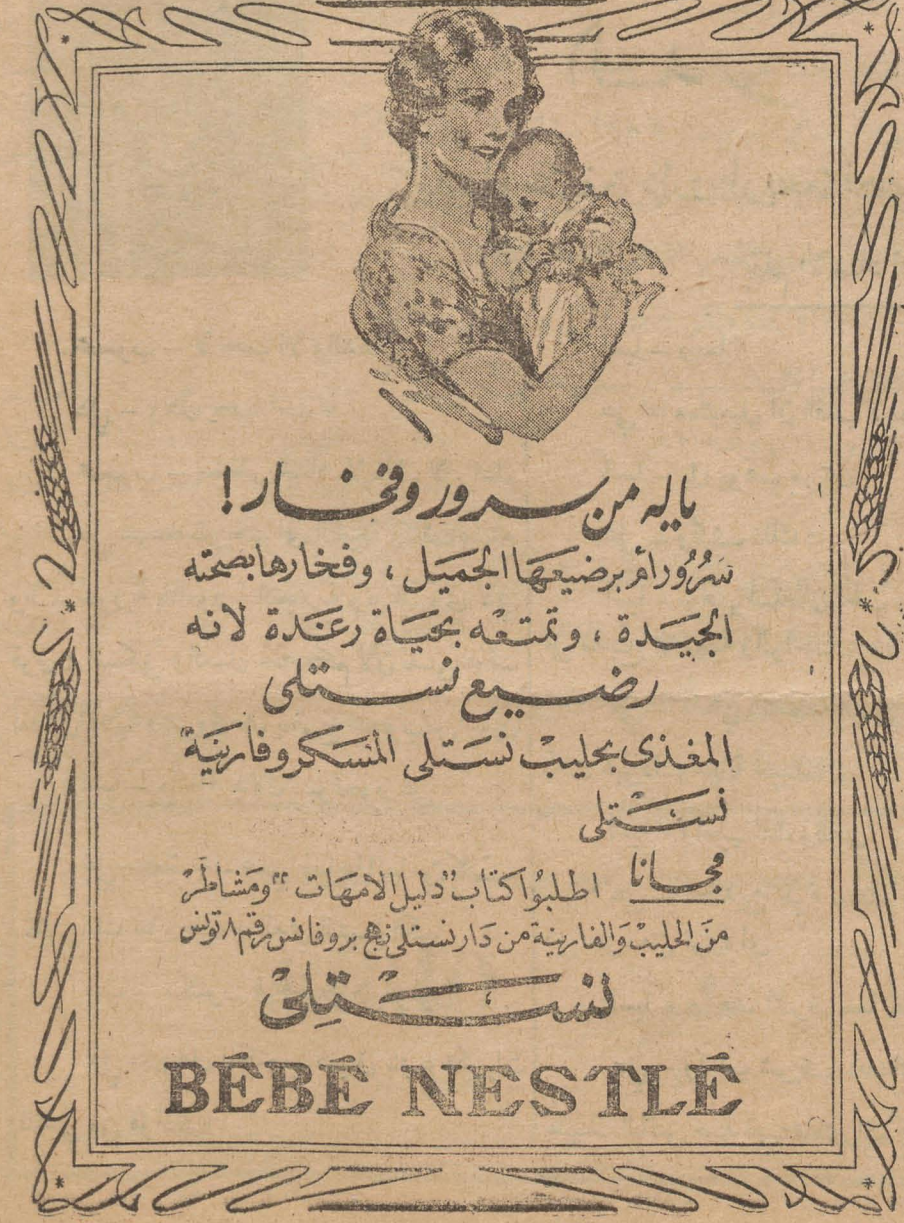 ياله من سرور وفخار !
سَرُوراُم برضيعَهَا الجميَل ، وفخارها بصحته
الجيَدة ، وتمتعْه بحَيَاة رعَدة لانه
رضيع نستلى
المغذى بحليبْ نسَتلى المْسَكر وفارينَة
نسَتْلى
مجانا اطلبُوا كتاب "دليل الامهَات" ومَشاطَرْ
منَ الحليبْ وَالفارينة من دَار نستلى نهج بروفانس رقم ٨ تونس
نسْتِلىْ
BÉBÉ NESTLÉ